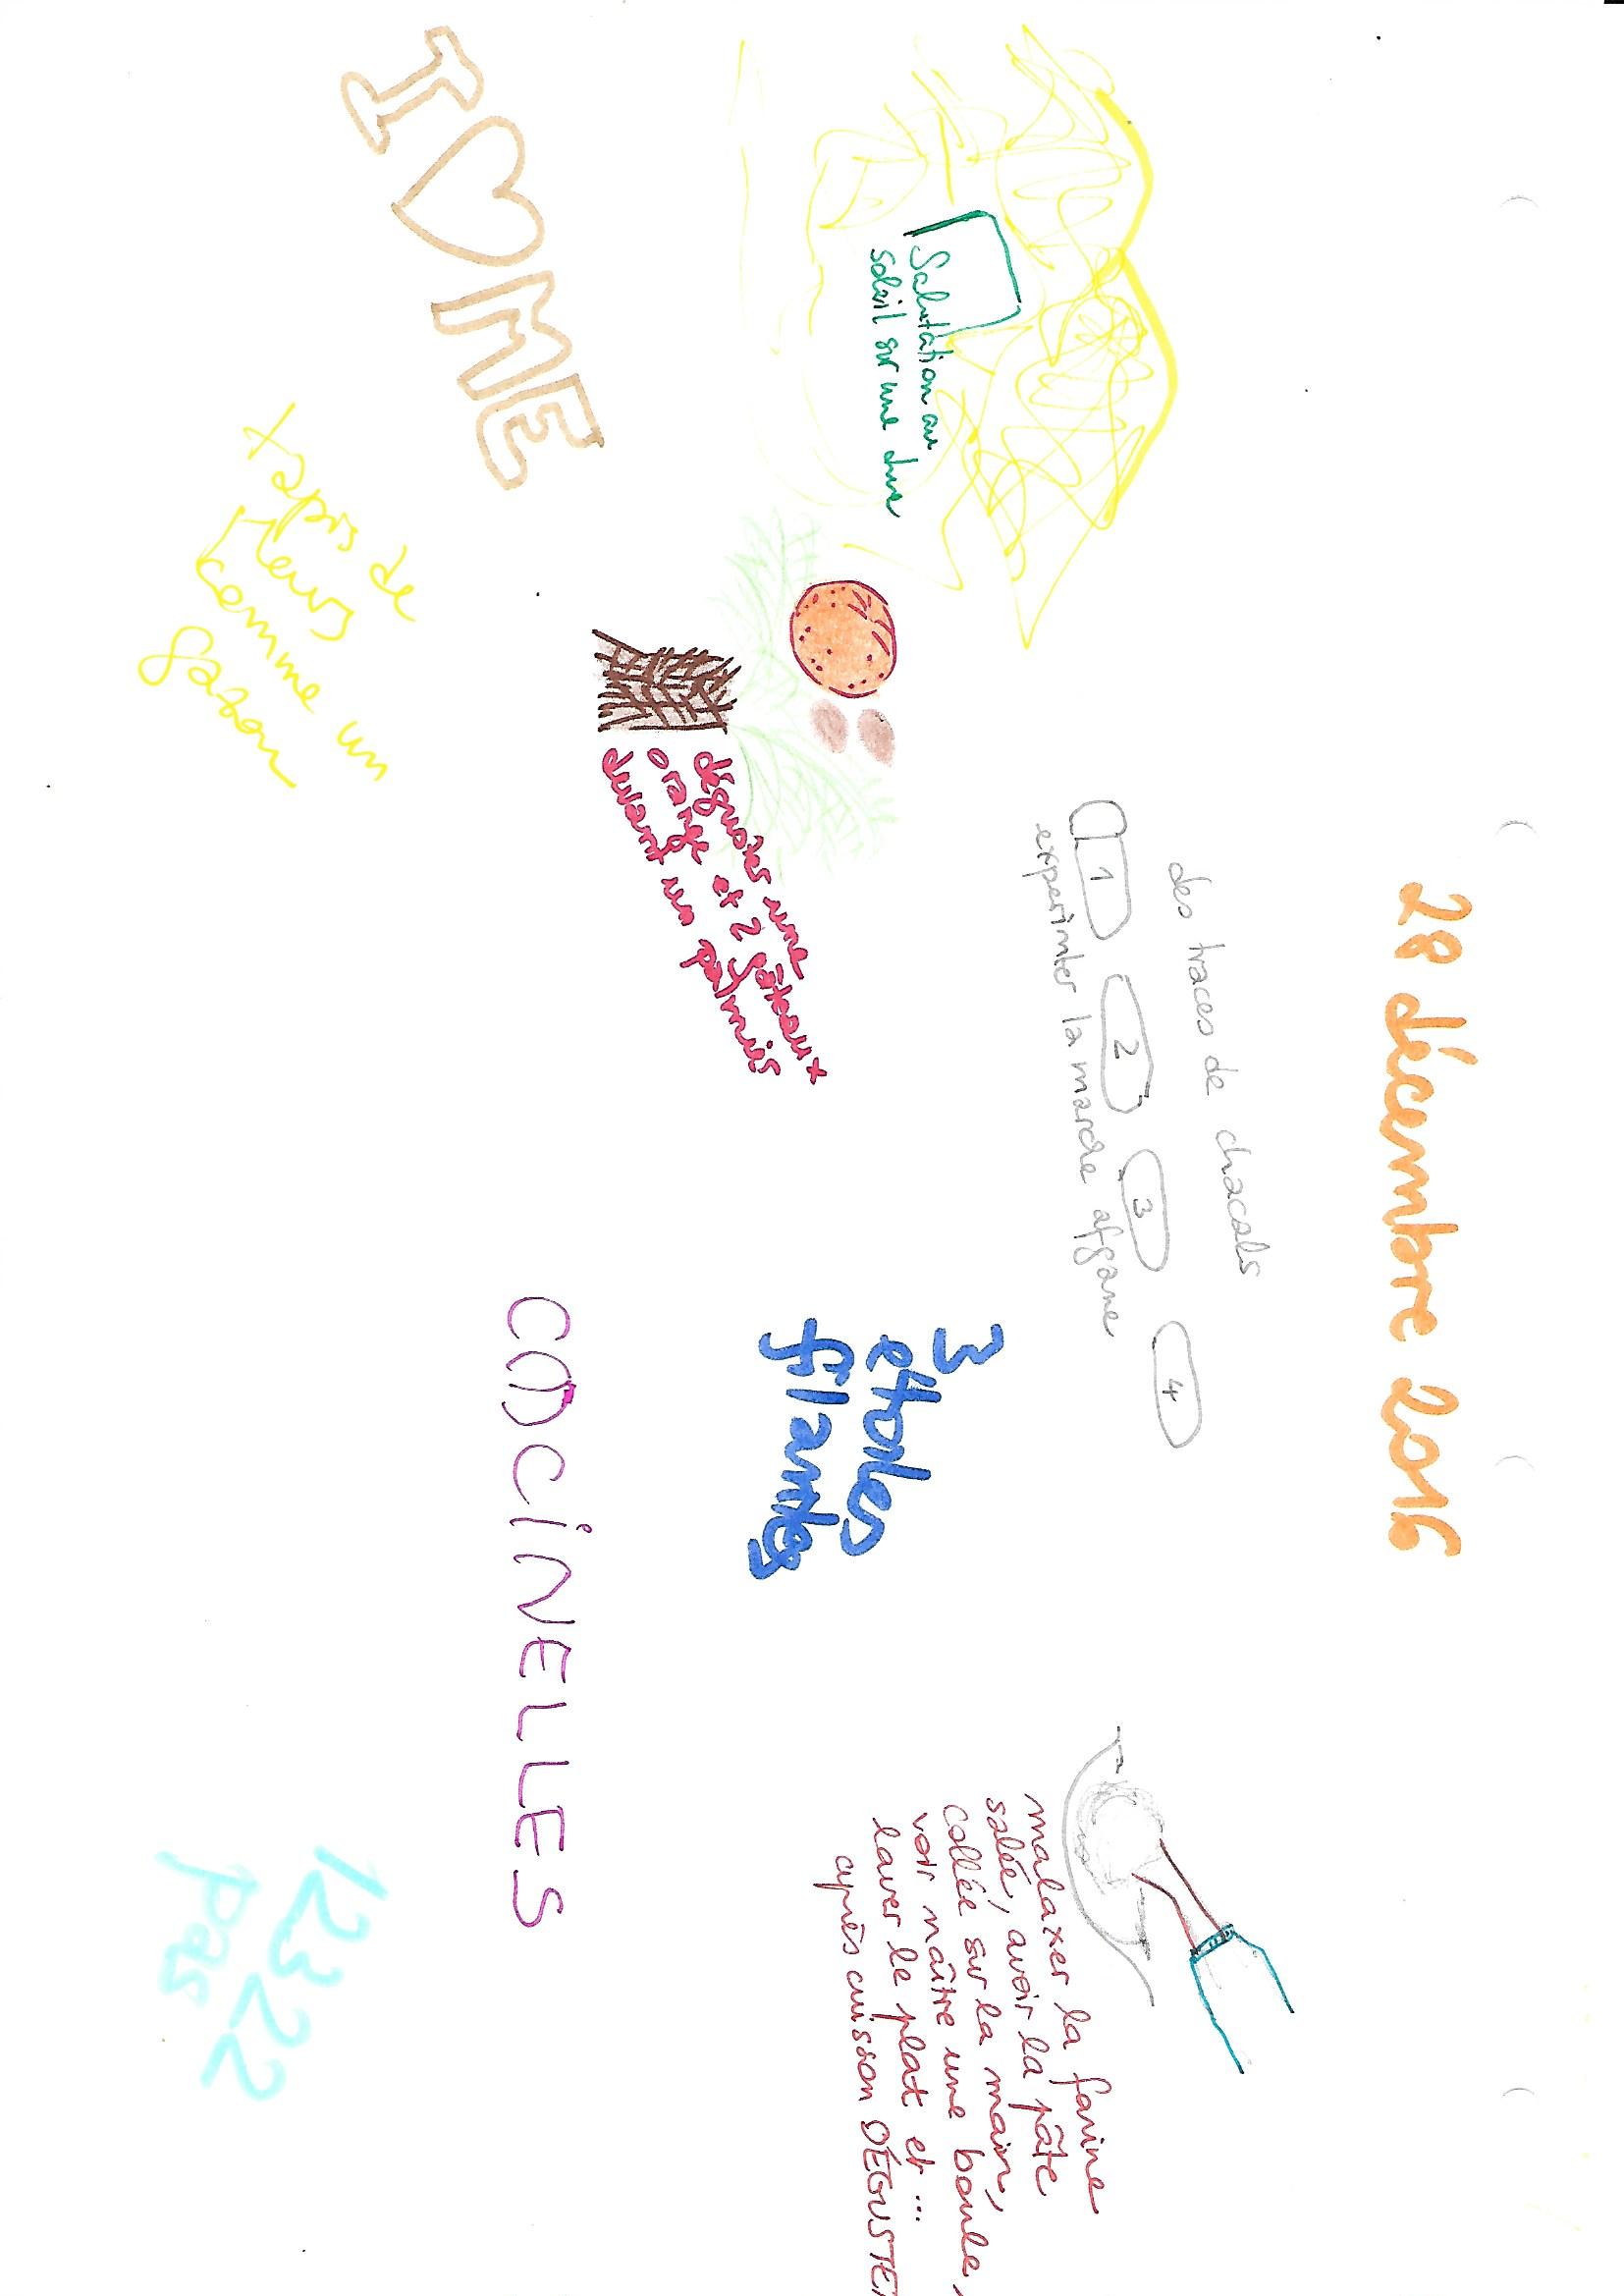 28 décembre 2016
Salutation au
soleil sur une dune
des traces de chacals
1 2 3 4
experimter la marche afgane
malaxer la farine
salée, avoir la pâte
collée sur la main,
voir naître une boule,
laver le plat et...
après cuisson DÉGUSTE
déguster une
orange et 2 gâteaux
devant un palmier
3
etoiles
filantes
I ♡ ME
COCCiNELLES
tapis de
fleurs
comme un
gazon
12322
pas